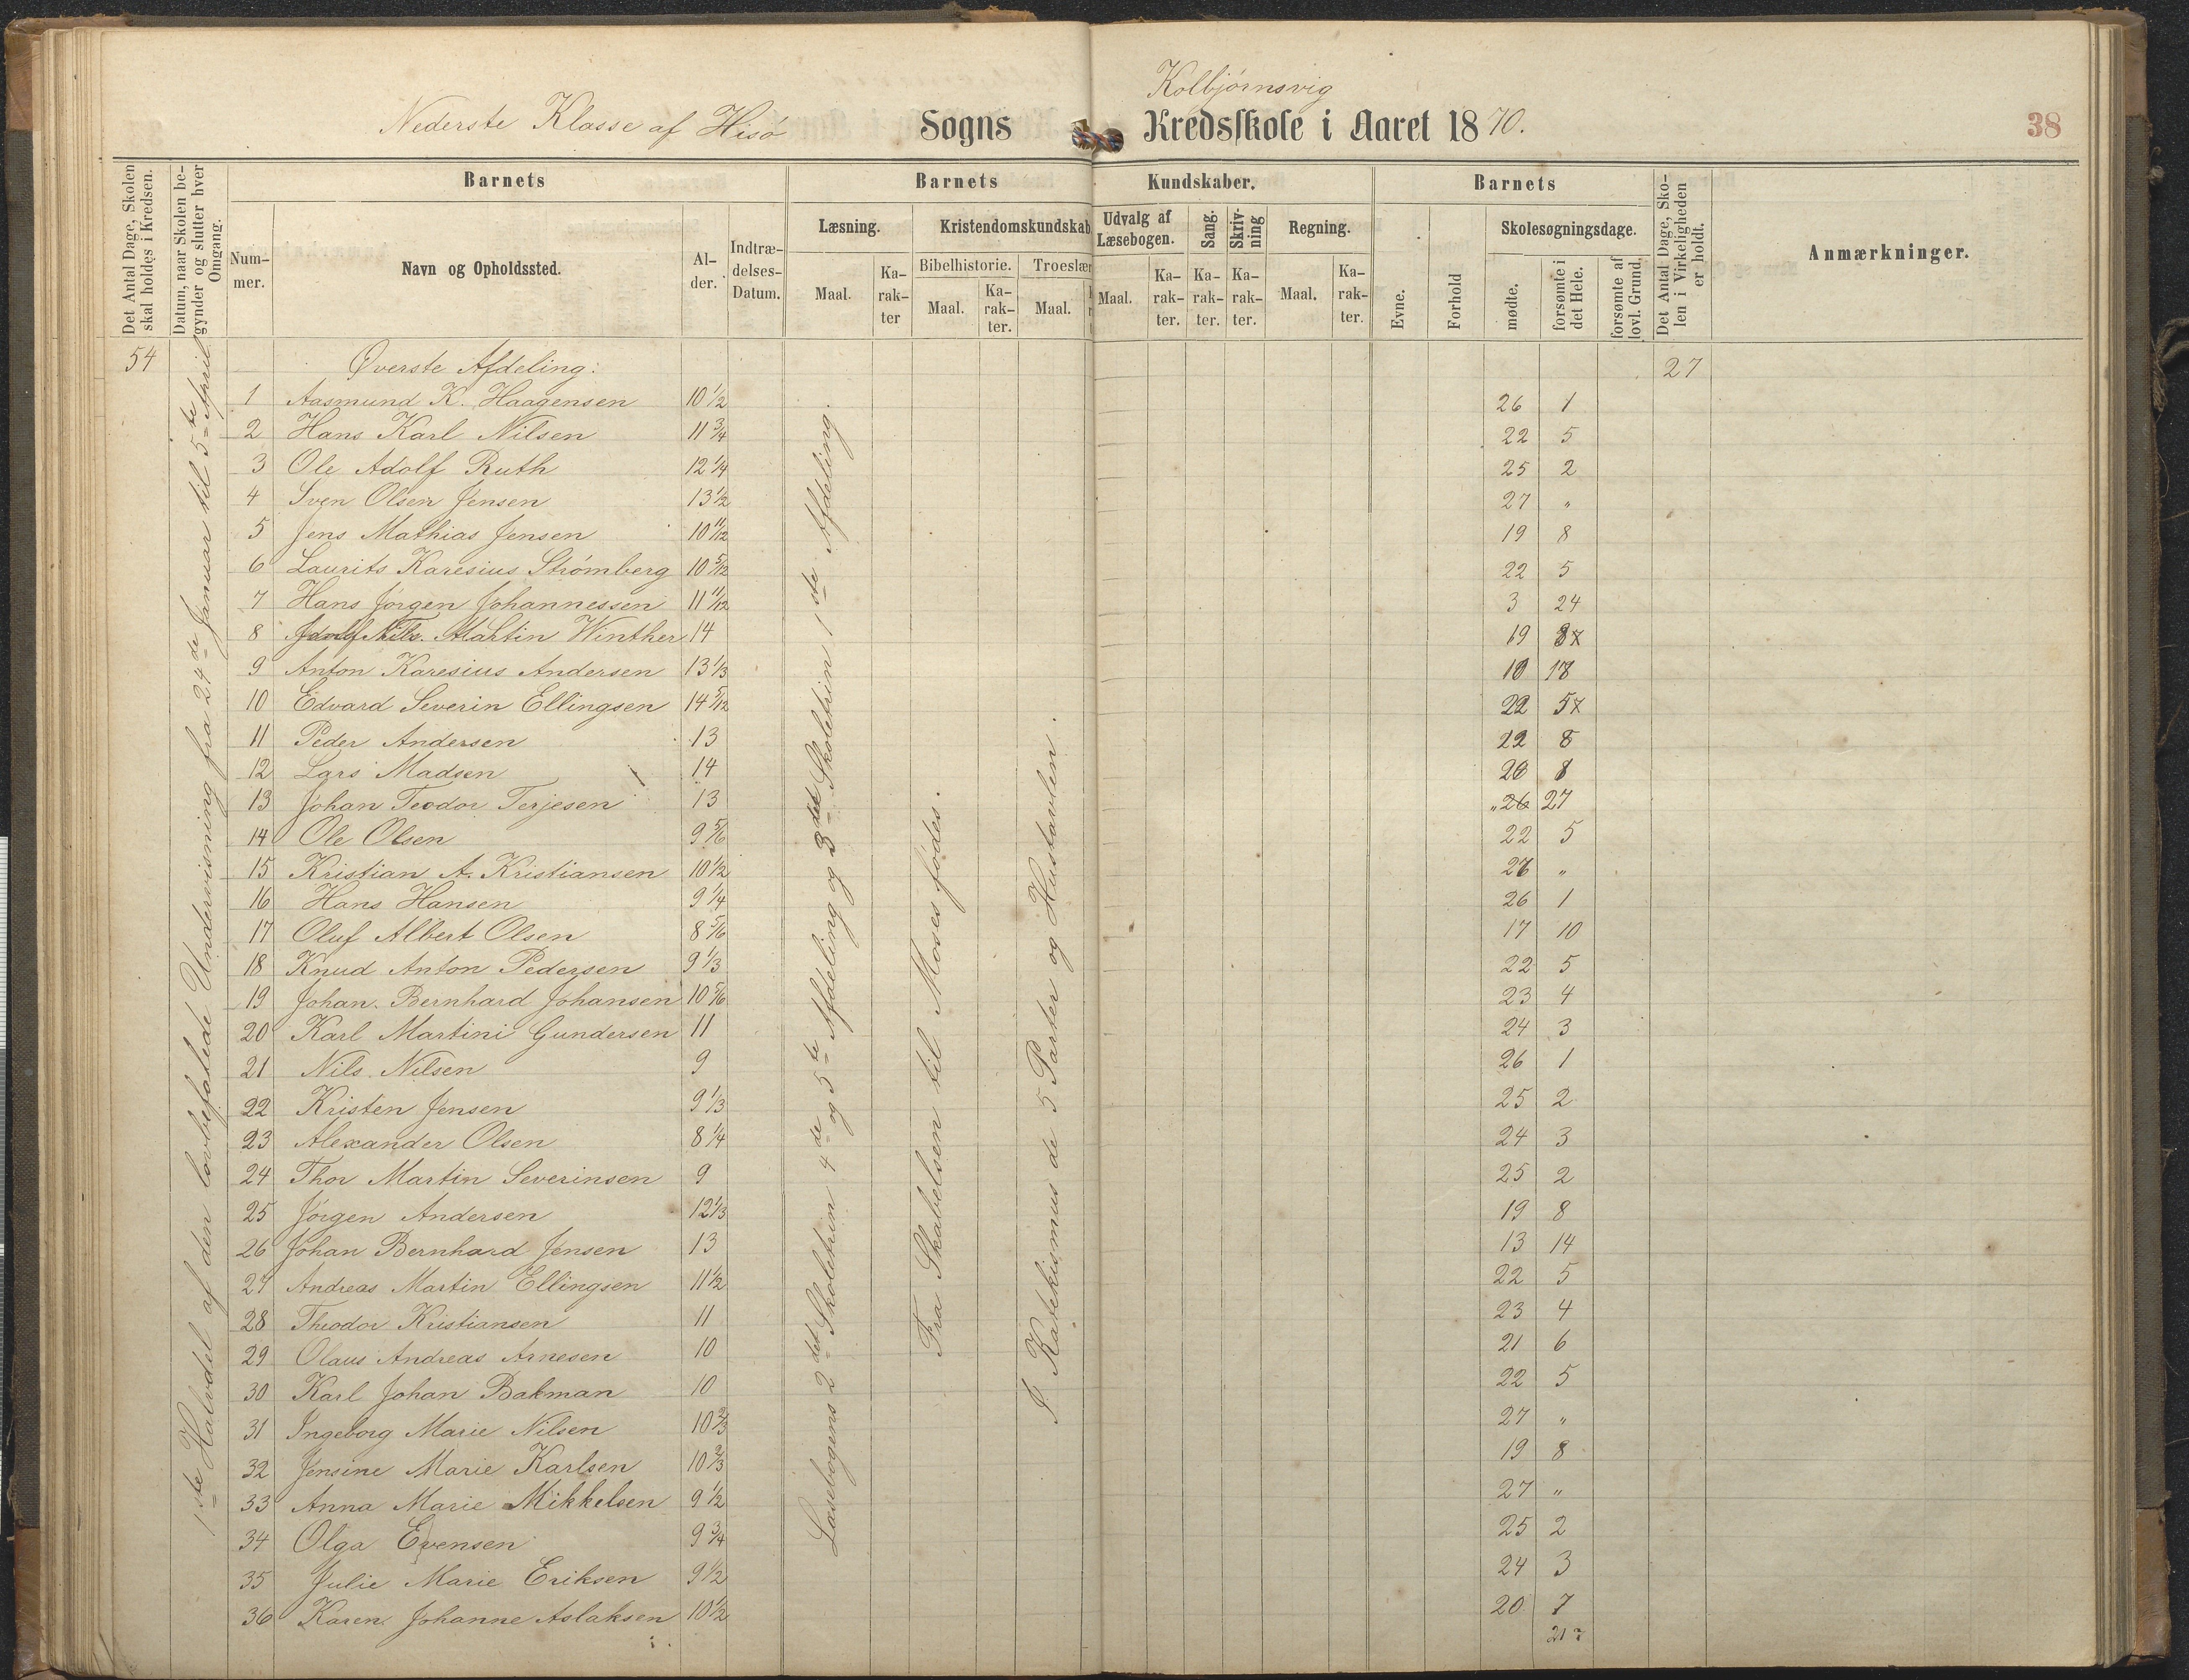 Kolbjørnsvig
Nederste Klasse af Hisø Sogns Kredsskole i Aaret 1870.
38
Det Antal Dage, Skolen skal holdes i Kredsen.
Datum, naar Skolen begynder og slutter hver Omgang.
Barnets
Nummer.
Navn og Opholdssted.
Alder.
Indtrædelses-Datum.
Barnets Kundskaber.
Læsning.
Maal.
Karakter
Kristendomskundskab
Bibelhistorie.
Maal.
Karakter.
Troeslær
Maal.
Udvalg af Læsebogen.
Maal.
Karakter.
Sang.
Karakter.
Skrivning
Karakter.
Regning.
Maal.
Karakter.
Barnets
Evne.
Forhold
Skolesøgningsdage.
mødte.
forsømte i det Hele.
forsømte af lovl. Grund.
Det Antal Dage, Skolen i Virkeligheden er holdt.
Anmærkninger.
54 Øverste Afdeling: 27
1 Aasmund K. Haagensen 10 1/2 26 1
2 Hans Karl Nilsen 11 3/4 22 5
3 Ole Adolf Ruth 12 1/4 25 2
4 Sven Olsen Jensen 13 1/2 27 "
5 Jens Mathias Jensen 10 11/12 19 8
6 Laurits Karesius Strømberg 10 5/12 22 5
7 Hans Jørgen Johannessen 11 11/12 3 24
8 Martin Winther 14 19
9 Anton Karesius Andersen 13 1/3
10 Edvard Severin Ellingsen 14 5/12 22 5
11 Peder Andersen 13
12 Lars Madsen 14
13 Johan Teodor Terjesen 13 " 26 27
14 Ole Olsen 9 5/6 22 5
15 Kristian A. Kristiansen 10 1/2 27 "
16 Hans Hansen 9 1/4 26 1
17 Oluf Albert Olsen 8 5/6 17 10
18 Knud Anton Pedersen 9 1/3 22 5
19 Johan Bernhard Johansen 10 5/6 23 4
20 Karl Martini Gundersen 11 24 3
21 Nils Nilsen 9 26 1
22 Kristen Jensen 9 1/3 25 2
23 Alexander Olsen 8 1/4 24 3
24 Thor Martin Severinsen 9 25 2
25 Jørgen Andersen 12 1/3 19 8
26 Johan Bernhard Jensen 13 13 14
27 Andreas Martin Ellingsen 11 1/2 22 5
28 Theodor Kristiansen 11 23 4
29 Olaus Andreas Arnesen 10 21 6
30 Karl Johan Bakman 10 22 5
31 Ingeborg Marie Nilsen 10 2/3 27 "
32 Jensine Marie Karlsen 10 2/3 19 8
33 Anna Marie Mikkelsen 9 1/2 27 "
34 Olga Evensen 9 3/4 25 2
35 Julie Marie Eriksen 9 1/2 24 3
36 Karen Johanne Aslaksen 10 1/2 20 7
1ste Halvdel af den lovbefalede Undervisning fra 24de Januar til 5te April
Læsebogens 2det Skoletrin 4de og 5te Afdeling og 3det Skoletrin 1ste Afdeling.
Fra Skabelsen til Moses fødes.
I Katekismus de 5 Parter og Hustavlen.